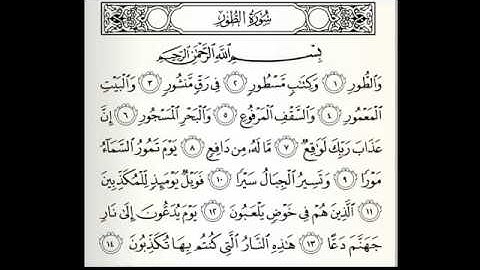 سُورَةُ الطُّورِ
بِسْمِ اللَّهِ الرَّحْمَٰنِ الرَّحِيمِ
وَالطُّورِ ١ وَكِتَابٍ مَّسْطُورٍ ٢ فِي رَقٍّ مَّنشُورٍ ٣ وَالْبَيْتِ
الْمَعْمُورِ ٤ وَالسَّقْفِ الْمَرْفُوعِ ٥ وَالْبَحْرِ الْمَسْجُورِ ٦ إِنَّ
عَذَابَ رَبِّكَ لَوَاقِعٌ ٧ مَّا لَهُ مِن دَافِعٍ ٨ يَوْمَ تَمُورُ السَّمَاءُ
مَوْرًا ٩ وَتَسِيرُ الْجِبَالُ سَيْرًا ١٠ فَوَيْلٌ يَوْمَئِذٍ لِّلْمُكَذِّبِينَ
١١ الَّذِينَ هُمْ فِي خَوْضٍ يَلْعَبُونَ ١٢ يَوْمَ يُدَعُّونَ إِلَىٰ نَارِ
جَهَنَّمَ دَعًّا ١٣ هَٰذِهِ النَّارُ الَّتِي كُنتُم بِهَا تُكَذِّبُونَ ١٤